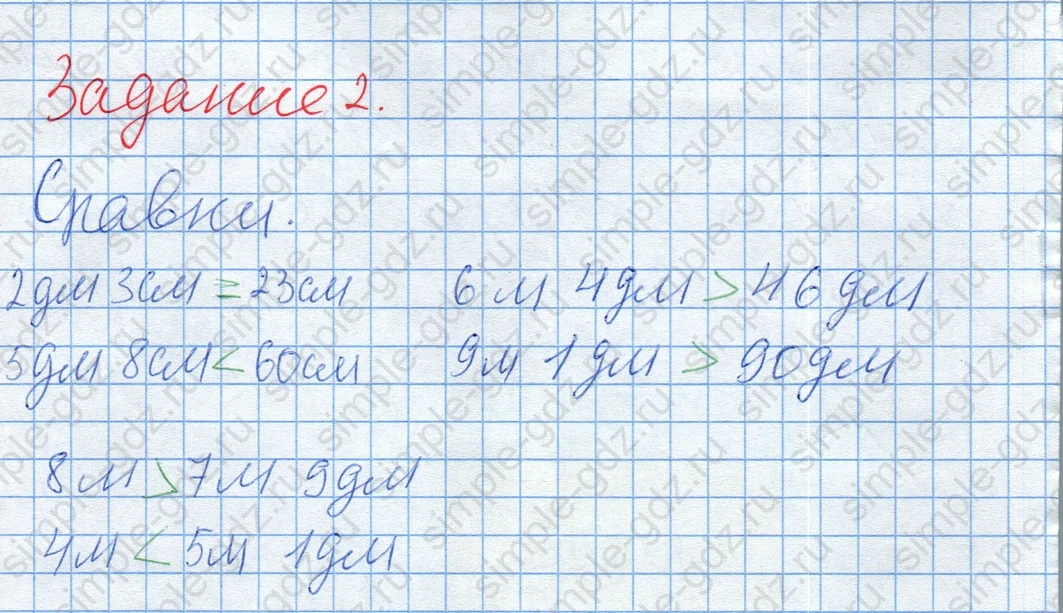 Задание 2.
Сравни.
2дм 3см = 23см 6м 4дм > 46дм
5дм 8см < 60см 9м 1дм > 90дм
8м > 7м 9дм
4м < 5м 1дм
simple-gdz.ru